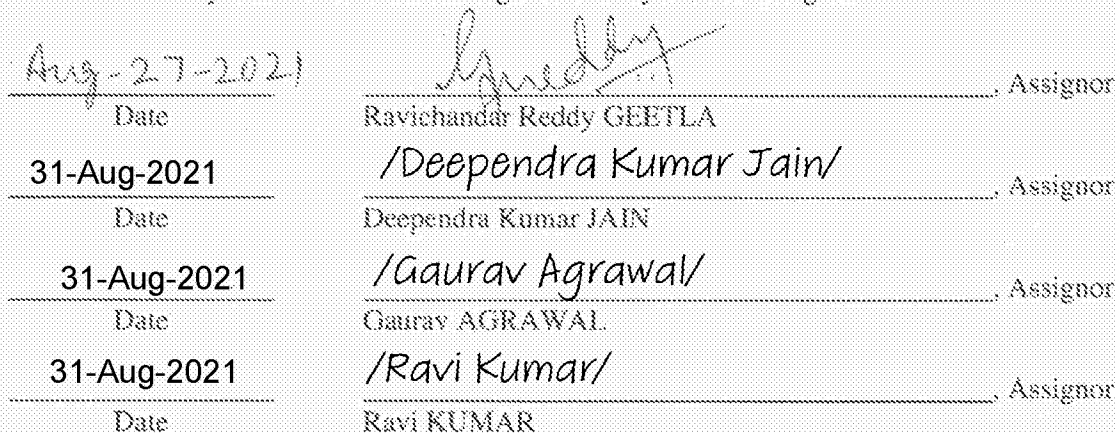 Aug-27-2021 Gjreddy, Assignor
Date Ravichandar Reddy GEETLA
31-Aug-2021 /Deependra Kumar Jain/, Assignor
Date Deependra Kumar JAIN
31-Aug-2021 /Gaurav Agrawal/, Assignor
Date Gaurav AGRAWAL
31-Aug-2021 /Ravi Kumar/, Assignor
Date Ravi KUMAR